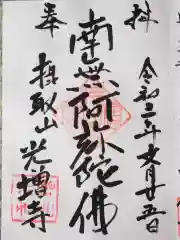 奉拝
令和二年文月廿五日
南無阿弥陀佛
摂取山光増寺